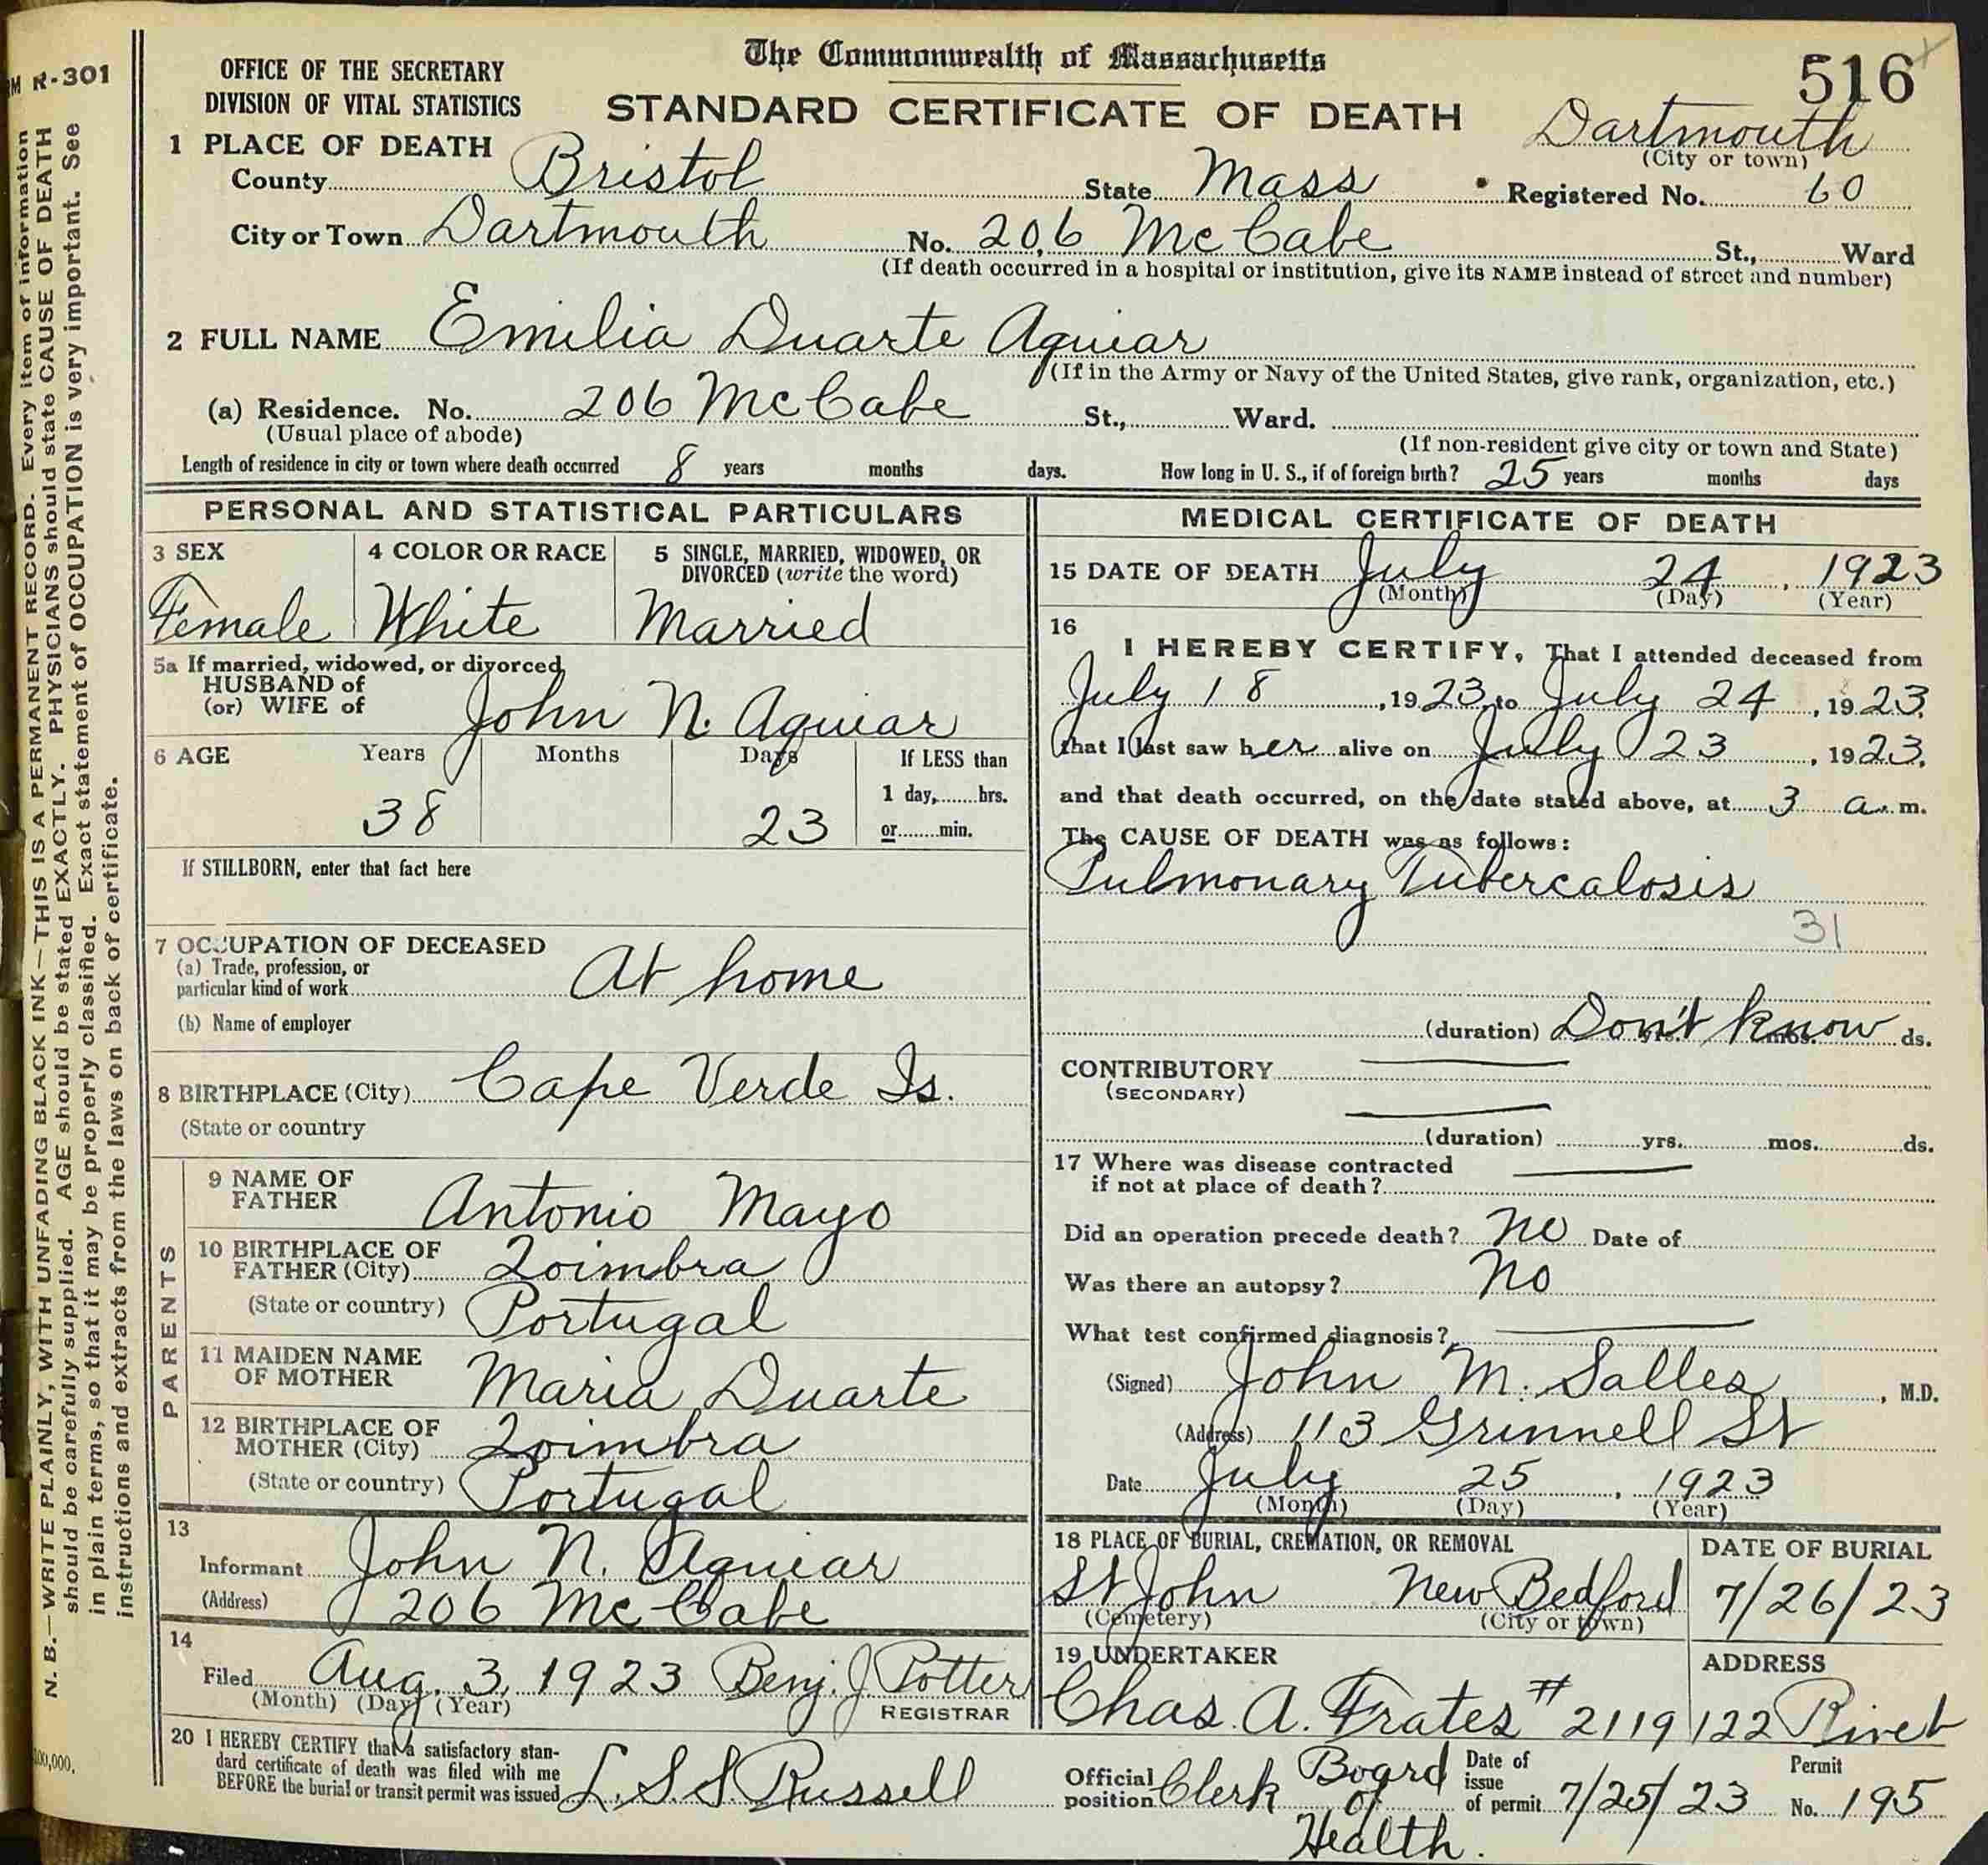 FORM R-301
N. B.—WRITE PLAINLY, WITH UNFADING BLACK INK—THIS IS A PERMANENT RECORD. Every item of information
should be carefully supplied. AGE should be stated EXACTLY. PHYSICIANS should state CAUSE OF DEATH
in plain terms, so that it may be properly classified. Exact statement of OCCUPATION is very important. See
instructions and extracts from the laws on back of certificate.
00,000.
The Commonwealth of Massachusetts
516
OFFICE OF THE SECRETARY
DIVISION OF VITAL STATISTICS
STANDARD CERTIFICATE OF DEATH
Dartmouth
(City or town)
1 PLACE OF DEATH
County Bristol State Mass Registered No. 60
City or Town Dartmouth No. 206 McCabe St., Ward
(If death occurred in a hospital or institution, give its NAME instead of street and number)
2 FULL NAME Emilia Duarte Aguiar
(If in the Army or Navy of the United States, give rank, organization, etc.)
(a) Residence. No. 206 McCabe St., Ward.
(Usual place of abode) (If non-resident give city or town and State)
Length of residence in city or town where death occurred 8 years months days. How long in U. S., if of foreign birth? 25 years months days
PERSONAL AND STATISTICAL PARTICULARS
3 SEX 4 COLOR OR RACE 5 SINGLE, MARRIED, WIDOWED, OR
DIVORCED (write the word)
Female White Married
5a If married, widowed, or divorced
HUSBAND of
(or) WIFE of John N. Aguiar
6 AGE Years Months Days If LESS than
1 day,......hrs.
38 23 or.......min.
If STILLBORN, enter that fact here
7 OCCUPATION OF DECEASED
(a) Trade, profession, or
particular kind of work At home
(b) Name of employer
8 BIRTHPLACE (City) Cape Verde Is.
(State or country
PARENTS
9 NAME OF
FATHER Antonio Mayo
10 BIRTHPLACE OF
FATHER (City) Coimbra
(State or country) Portugal
11 MAIDEN NAME
OF MOTHER Maria Duarte
12 BIRTHPLACE OF
MOTHER (City) Coimbra
(State or country) Portugal
13
Informant John N. Aguiar
(Address) 206 McCabe
14
Filed Aug. 3, 1923 Benj. J. Potter
(Month) (Day) (Year) REGISTRAR
MEDICAL CERTIFICATE OF DEATH
15 DATE OF DEATH July 24, 1923
(Month) (Day) (Year)
16
I HEREBY CERTIFY, That I attended deceased from
July 18, 1923, to July 24, 1923,
that I last saw her alive on July 23, 1923,
and that death occurred, on the date stated above, at 3 a. m.
The CAUSE OF DEATH was as follows:
Pulmonary Tubercalosis
31
(duration) Don't know yrs. mos. ds.
CONTRIBUTORY
(SECONDARY)
(duration) yrs. mos. ds.
17 Where was disease contracted
if not at place of death?
Did an operation precede death? no Date of
Was there an autopsy? no
What test confirmed diagnosis?
(Signed) John M. Salles, M.D.
(Address) 113 Grinnell St
Date July 25, 1923
(Month) (Day) (Year)
18 PLACE OF BURIAL, CREMATION, OR REMOVAL DATE OF BURIAL
St John New Bedford 7/26/23
(Cemetery) (City or town)
19 UNDERTAKER ADDRESS
Chas. A. Frates # 2119 122 Rivet
20 I HEREBY CERTIFY that a satisfactory stan-
dard certificate of death was filed with me
BEFORE the burial or transit permit was issued L. S. S. Russell
Official position Clerk Board of Health.
Date of issue of permit 7/25/23
Permit No. 195